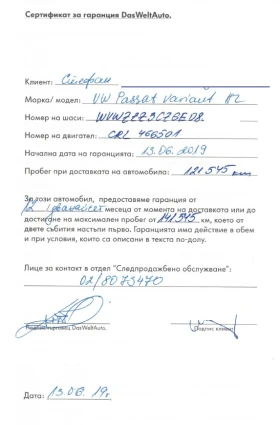 Сертификат за гаранция DasWeltAuto.
Клиент: Стефан
Марка/ модел: VW Passat Variant HL
Номер на шаси: WVWZZZ3CZGE08.
Номер на двигател: CRL 466501
Начална дата на гаранцията: 13.06.2019
Пробег при доставка на автомобила: 121545 km
За този автомобил, предоставяме гаранция от
12 /дванайсет месеца от момента на доставката или до
достигане на максимален пробег от 141545 км, което от
двете събития настъпи първо. Гаранцията има действие в обем
и при условия, които са описани в текста по-долу.
Лице за контакт в отдел "Следпродажбено обслужване":
02/8073470
DasWeltAuto.
Подпис клиент
Дата: 13.06.19г.